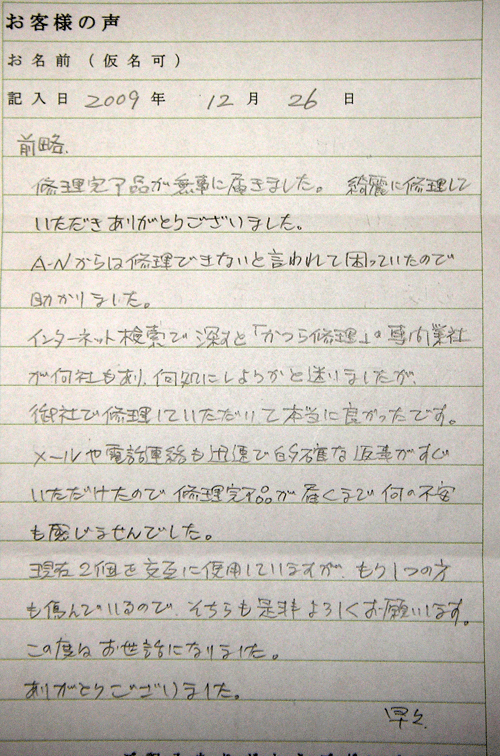 お客様の声
お名前（仮名可）
記入日 2009 年 12 月 26 日
前略、
修理完了品が無事に届きました。 綺麗に修理して
いただきありがとうございました。
A-Nからは修理できないと言われて困っていたので
助かりました。
インターネット検索で探すと「かつら修理」の専門業社
が何社もあり、何処にしようかと迷いましたが、
御社で修理していただいて本当に良かったです。
メールや電話連絡も迅速で的確な返事がすぐ
いただけたので 修理完了品が届くまで 何の不安
も感じませんでした。
現在2個を交互に使用していますが、もう1つの方
も傷んでいるので、そちらも是非よろしくお願いします。
この度は お世話になりました。
ありがとうございました。
早々